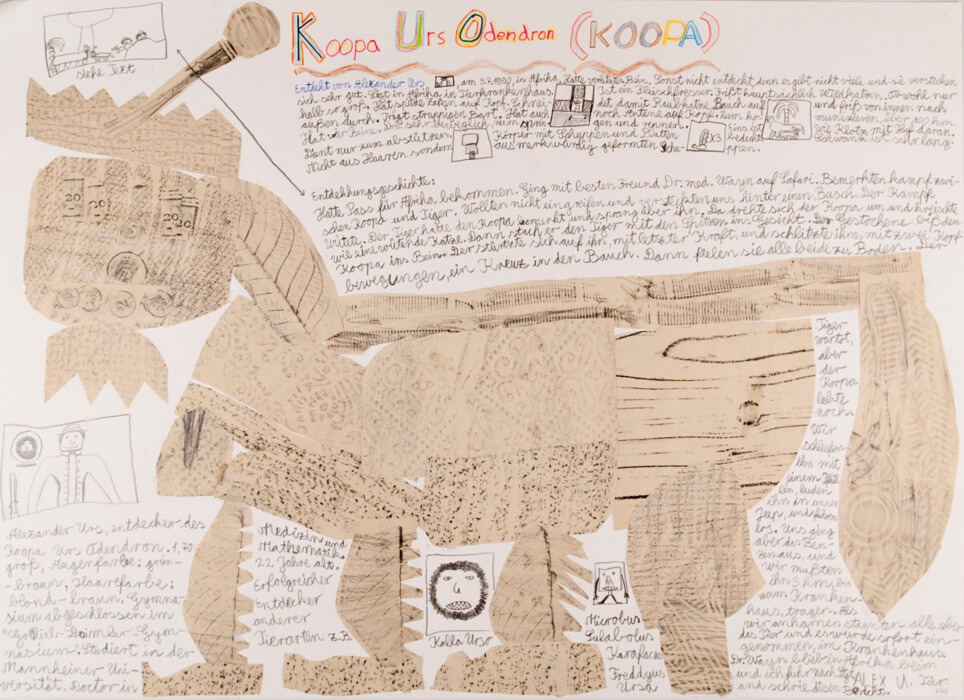 Koopa Urs Odendron (KOOPA)
siehe Text
Entdeckt von Alexander Urs am 3.7.1980, in Afrika. Hatte verletztes Bein. Sonst nicht entdeckt denn es gibt nicht viele, und sie verstecken
sich sehr gut. Lebt in Afrika in Tierkrankenhaus. Ist ein Fleischfresser. Frißt hauptsächlich Wildkatzen, obwohl nur
halb so groß. Hat spitze Zaken auf Kopf. Schnei- det damit Raubkatze Bauch auf und frißt von innen nach
außen durch. Trägt struppigen Bart. Hat auch noch Antene auf Kopf zum
Hat vier Beine. Ist sehr beweglich, kann sprin- gen und rennen. wie Klotz mit Kopf daran.
Dient nur zum abstützen. Körper mit Schuppen und Platten Schwanz ist sehr lang.
Nicht aus Haaren sondern aus merkwürdig geformten Schu- ppen.
x3
Entdekhungsgeschichte:
Hatte Pass für Afrika bekommen. Ging mit besten Freund Dr. med. Waryn auf Safari. Bemerkten kampf zwi-
schen Koopa und Tiger. Wollten nicht eingreifen und versteckten uns hinter einen Busch. Der Kampf
wütete. Der Tiger hatte den Koopa bemerkt und sprang über ihn. Da drehte sich der Koopa um und
wie eine wütende Katze. Dann stach er den Tiger mit den Spitzen ins Gesicht. Der Gestochene biss dem
Koopa ins Bein. Der stürtzte sich auf ihn, mit letzter Kraft, und schlitzte ihm, mit zwei Kopf
bewegungen, ein Kreuz in den Bauch. Dann fielen sie alle beide zu Boden. Der
Tiger
war tot,
aber
der
Koopa
lebte
noch.
Wir
schliefen
ihn mit
einem
ein, luden
ihn in unser
Jeep, und fuhren
los. Uns ging
aber das Ben-
zin aus, und
wir mußten
ihn 3 km, bis
zum Kranken-
haus, tragen. Als
wir ankamen staunten alle über
das Tier und es wurde sofort ein-
genommen, im Krankenhaus.
Dr. Waryn blieb in Afrika beim
und ich fuhr nach
und schrieb den
ALEX U. Tier
20 20 20
Alexander Urs, entdecker des
Koopa Urs Odendron. 1,70
groß, Augenfarbe: grün-
braun, Haarfarbe:
blond-braun. Gymna-
sium abgeschlossen im
"Gottlieb-Daimler Gym-
nasium". Studiert in der
Mannheimer Uni-
versität. Doctor in
Medizin und
Mathematik.
22 Jahre alt.
Erfolgreicher
Entdecker
anderer
Tierarten z.B.
Kolla Urso
Microbus
Lulabolus
Freddyus
Ursa